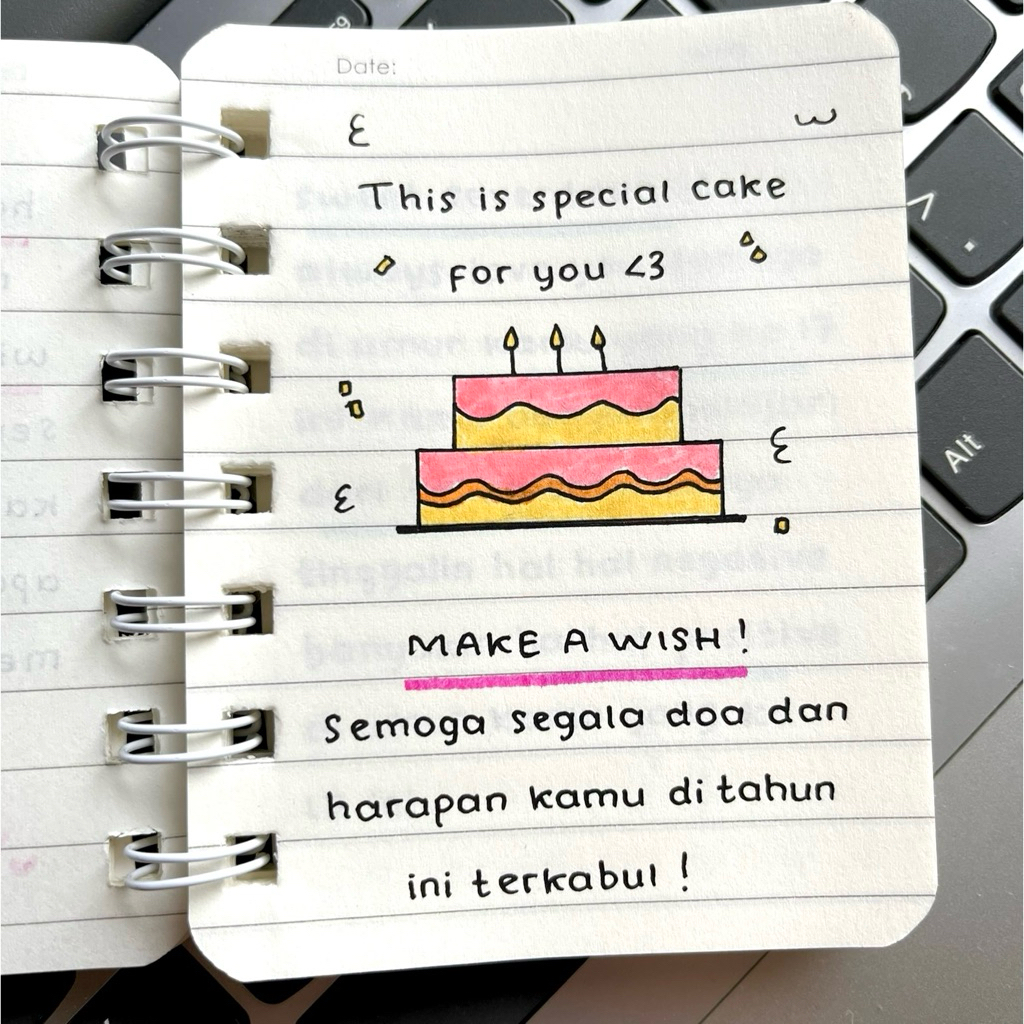 Date:
This is special cake
for you <3
MAKE A WISH!
Semoga segala doa dan
harapan kamu di tahun
ini terkabul!
Alt